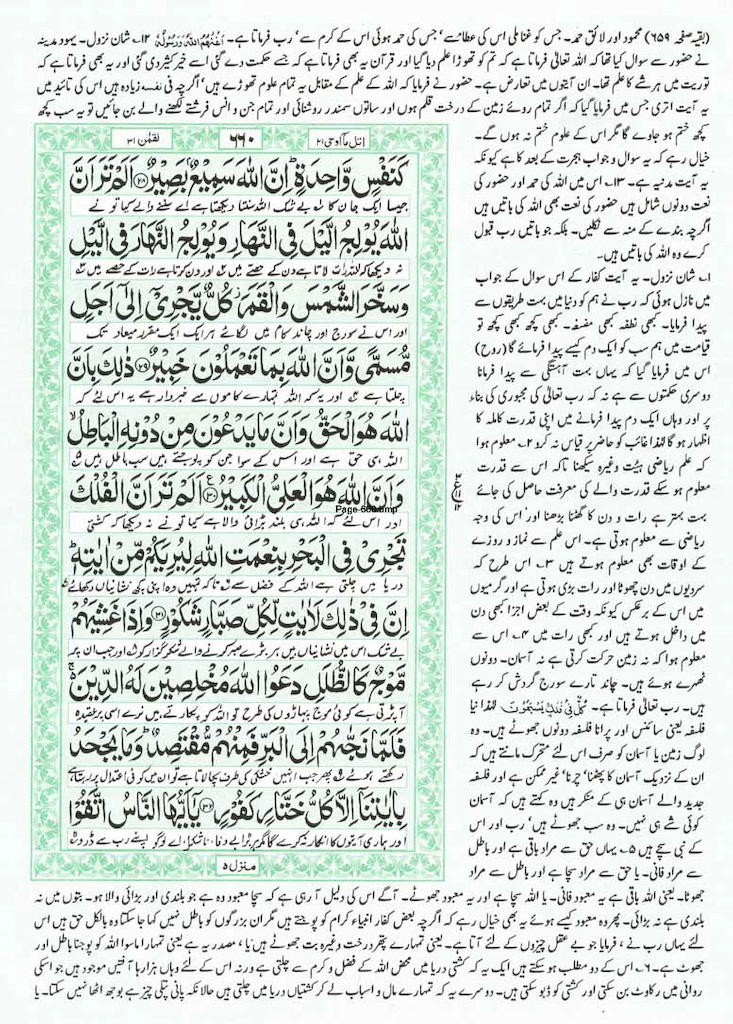 (بقیہ صفحہ ۶۵۹) محمود اور لائق حمد۔ جس کو غنا ملی اس کی عطا سے' جس کی حمد ہوئی اس کے کرم سے' رب فرماتا ہے۔ اَغْنٰهُمُ اللّٰهُ وَرَسُوْلُهٗ ۱۲؎ شان نزول۔ یہود مدینہ
نے حضور سے سوال کیا تھا کہ اللہ تعالیٰ فرماتا ہے کہ تم کو تھوڑا علم دیا گیا اور قرآن یہ بھی فرماتا ہے کہ جسے حکمت دے گئی اسے خیر کثیر دی گئی اور یہ بھی فرماتا ہے کہ
توریت میں ہر شے کا علم تھا۔ ان آیتوں میں تعارض ہے۔ حضور نے فرمایا کہ اللہ کے علم کے مقابل یہ تمام علوم تھوڑے ہیں' اگرچہ فی نفسہ زیادہ ہیں اس کی تائید میں
یہ آیت اتری جس میں فرمایا گیا کہ اگر تمام روئے زمین کے درخت قلم ہوں اور ساتوں سمندر روشنائی اور تمام جن و انس فرشتے لکھنے والے بن جائیں تو یہ سب کچھ
کچھ ختم ہو جاوے گا مگر اس کے علوم ختم نہ ہوں گے۔
خیال رہے کہ یہ سوال و جواب ہجرت کے بعد کا ہے کیونکہ
یہ آیت مدنیہ ہے۔ ۱۳؎ اس میں اللہ کی حمد اور حضور کی
نعت دونوں شامل ہیں حضور کی نعت بھی اللہ کی باتیں ہیں
اگرچہ بندے کے منہ سے نکلیں۔ بلکہ جو باتیں رب قبول
کرے وہ اللہ کی باتیں ہیں۔
۱؎ شان نزول۔ یہ آیت کفار کے اس سوال کے جواب
میں نازل ہوئی کہ رب نے ہم کو دنیا میں بہت طریقوں سے
پیدا فرمایا۔ کبھی نطفہ کبھی مضغہ۔ کبھی کچھ کبھی کچھ تو
قیامت میں ہم سب کو ایک دم کیسے پیدا فرمائے گا (روح)
اس میں فرمایا گیا کہ یہاں بہت آہستگی سے پیدا فرمانا
دوسری حکمتوں سے ہے نہ کہ رب تعالیٰ کی مجبوری کی بناء
پر اور وہاں ایک دم پیدا فرمانے میں اپنی قدرت کاملہ کا
اظہار ہو گا لہٰذا غائب کو حاضر پر قیاس نہ کرو ۲؎ معلوم ہوا
کہ علم ریاضی ہیئت وغیرہ سیکھنا تاکہ اس سے قدرت
معلوم ہو سکے قدرت والے کی معرفت حاصل کی جائے
بہت بہتر ہے رات و دن کا گھٹنا بڑھنا اور اس کی وجہ
ریاضی سے معلوم ہوتی ہے۔ اس علم سے نماز و روزے
کے اوقات بھی معلوم ہوتے ہیں ۳؎ اس طرح کہ
سردیوں میں دن چھوٹا اور رات بڑی ہوتی ہے اور گرمیوں
میں اس کے برعکس کیونکہ وقت کے بعض اجزا کبھی دن
میں داخل ہوتے ہیں اور کبھی رات میں ۴؎ اس سے
معلوم ہوا کہ نہ زمین حرکت کرتی ہے نہ آسمان۔ دونوں
ٹھہرے ہوئے ہیں۔ چاند تارے سورج گردش کر رہے
ہیں۔ رب تعالیٰ فرماتا ہے۔ كُلٌّ فِيْ فَلَكٍ يَّسْبَحُوْنَ۔ لہٰذا نیا
فلسفہ یعنی سائنس اور پرانا فلسفہ دونوں جھوٹے ہیں۔ وہ
لوگ زمین یا آسمان کو صرف اس لئے متحرک مانتے ہیں کہ
ان کے نزدیک آسمان کا پھٹنا' چرنا' غیر ممکن ہے اور فلسفہ
جدید والے آسمان ہی کے منکر ہیں وہ کہتے ہیں کہ آسمان
کوئی شے ہی نہیں۔ وہ سب جھوٹے ہیں' رب اور اس
کے نبی سچے ہیں ۵؎ یہاں حق سے مراد باقی ہے اور باطل
سے مراد فانی۔ یا حق سے مراد سچا ہے اور باطل سے مراد
اتل مآ اوحی ۲۱
۶۶۰
لقمٰن ۳۱
كَنَفْسٍ وَّاحِدَةٍ ؕ اِنَّ اللّٰهَ سَمِيْعٌۢ بَصِيْرٌ ﴿۲۸﴾ اَلَمْ تَرَ اَنَّ
جیسا ایک جان کا ؎۱ بے شک اللہ سنتا دیکھتا ہے اے سننے والے کیا تو نے
اللّٰهَ يُوْلِجُ الَّيْلَ فِي النَّهَارِ وَيُوْلِجُ النَّهَارَ فِي الَّيْلِ
نہ دیکھا کہ اللہ رات لاتا ہے دن کے حصے میں ؎۲ اور دن کرتا ہے رات کے حصے میں ؎۳
وَسَخَّرَ الشَّمْسَ وَالْقَمَرَ ؗ كُلٌّ يَّجْرِيْۤ اِلٰۤى اَجَلٍ
اور اس نے سورج اور چاند کام میں لگائے ہر ایک ایک مقرر میعاد تک
مُّسَمًّى وَّاَنَّ اللّٰهَ بِمَا تَعْمَلُوْنَ خَبِيْرٌ ﴿۲۹﴾ ذٰلِكَ بِاَنَّ
چلتا ہے ؎۴ اور یہ کہ اللہ تمہارے کاموں سے خبردار ہے یہ اس لئے کہ
اللّٰهَ هُوَ الْحَقُّ وَاَنَّ مَا يَدْعُوْنَ مِنْ دُوْنِهِ الْبَاطِلُ ۙ
اللہ ہی حق ہے اور اس کے سوا جن کو پوجتے ہیں سب باطل ہیں ؎۵
وَاَنَّ اللّٰهَ هُوَ الْعَلِيُّ الْكَبِيْرُ ﴿۳۰﴾ اَلَمْ تَرَ اَنَّ الْفُلْكَ
Page-660.bmp
اور اس لئے کہ اللہ ہی بلند بڑائی والا ہے کیا تو نے نہ دیکھا کہ کشتی
تَجْرِيْ فِي الْبَحْرِ بِنِعْمَتِ اللّٰهِ لِيُرِيَكُمْ مِّنْ اٰيٰتِهٖ ؕ
دریا میں چلتی ہے اللہ کے فضل سے ؎۶ تاکہ تمہیں وہ اپنی کچھ نشانیاں دکھائے
اِنَّ فِيْ ذٰلِكَ لَاٰيٰتٍ لِّكُلِّ صَبَّارٍ شَكُوْرٍ ﴿۳۱﴾ وَاِذَا غَشِيَهُمْ
بے شک اس میں نشانیاں ہیں ہر بڑے صبر کرنے والے شکر گزار کو اور جب ان پر
مَّوْجٌ كَالظُّلَلِ دَعَوُا اللّٰهَ مُخْلِصِيْنَ لَهُ الدِّيْنَ ۚ
آ پڑتی ہے کوئی موج پہاڑوں کی طرح تو اللہ کو پکارتے ہیں نرے اسی پر عقیدہ
فَلَمَّا نَجّٰىهُمْ اِلَى الْبَرِّ فَمِنْهُمْ مُّقْتَصِدٌ ؕ وَمَا يَجْحَدُ
رکھتے ہوئے پھر جب انہیں خشکی کی طرف بچا لاتا ہے تو ان میں کوئی اعتدال پر رہتا ہے
بِاٰيٰتِنَاۤ اِلَّا كُلُّ خَتَّارٍ كَفُوْرٍ ﴿۳۲﴾ يٰۤاَيُّهَا النَّاسُ اتَّقُوْا
اور ہماری آیتوں کا انکار نہ کرے گا مگر ہر بڑا بے وفا ناشکرا اے لوگو اپنے رب سے ڈرو
منزل ۵
جھوٹا۔ یعنی اللہ باقی ہے یہ معبود فانی۔ یا اللہ سچا ہے اور یہ معبود جھوٹے۔ آگے اس کی دلیل آ رہی ہے کہ سچا معبود وہ ہے جو بلندی اور بڑائی والا ہو۔ بتوں میں نہ
بلندی ہے نہ بڑائی۔ پھر وہ معبود کیسے ہوئے یہ بھی خیال رہے کہ اگرچہ بعض کفار انبیاء کرام کو پوجتے ہیں مگر ان بزرگوں کو باطل نہیں کہا جا سکتا وہ بالکل حق ہیں اس
لئے یہاں رب نے ما فرمایا جو بے عقل چیزوں کے لئے آتا ہے۔ یعنی تمہارے پتھر درخت وغیرہ بت جھوٹے ہیں' یا ما مصدریہ ہے یعنی تمہارا ماسوا اللہ کو پوجنا باطل اور
جھوٹ ہے۔ ۶؎ اس کے دو مطلب ہو سکتے ہیں ایک یہ کہ کشتی دریا میں محض اللہ کے فضل و کرم سے چلتی ہے ورنہ اس کے لئے وہاں ہزارہا آفتیں موجود ہیں جو اسکی
روانی میں رکاوٹ بن سکتی اور کشتی کو ڈبو سکتی ہیں۔ دوسرے یہ کہ تمہارے مال و اسباب لے کر کشتیاں دریا میں چلتی ہیں حالانکہ پانی پتلی چیز ہے بوجھ اٹھا نہیں سکتا۔ یا